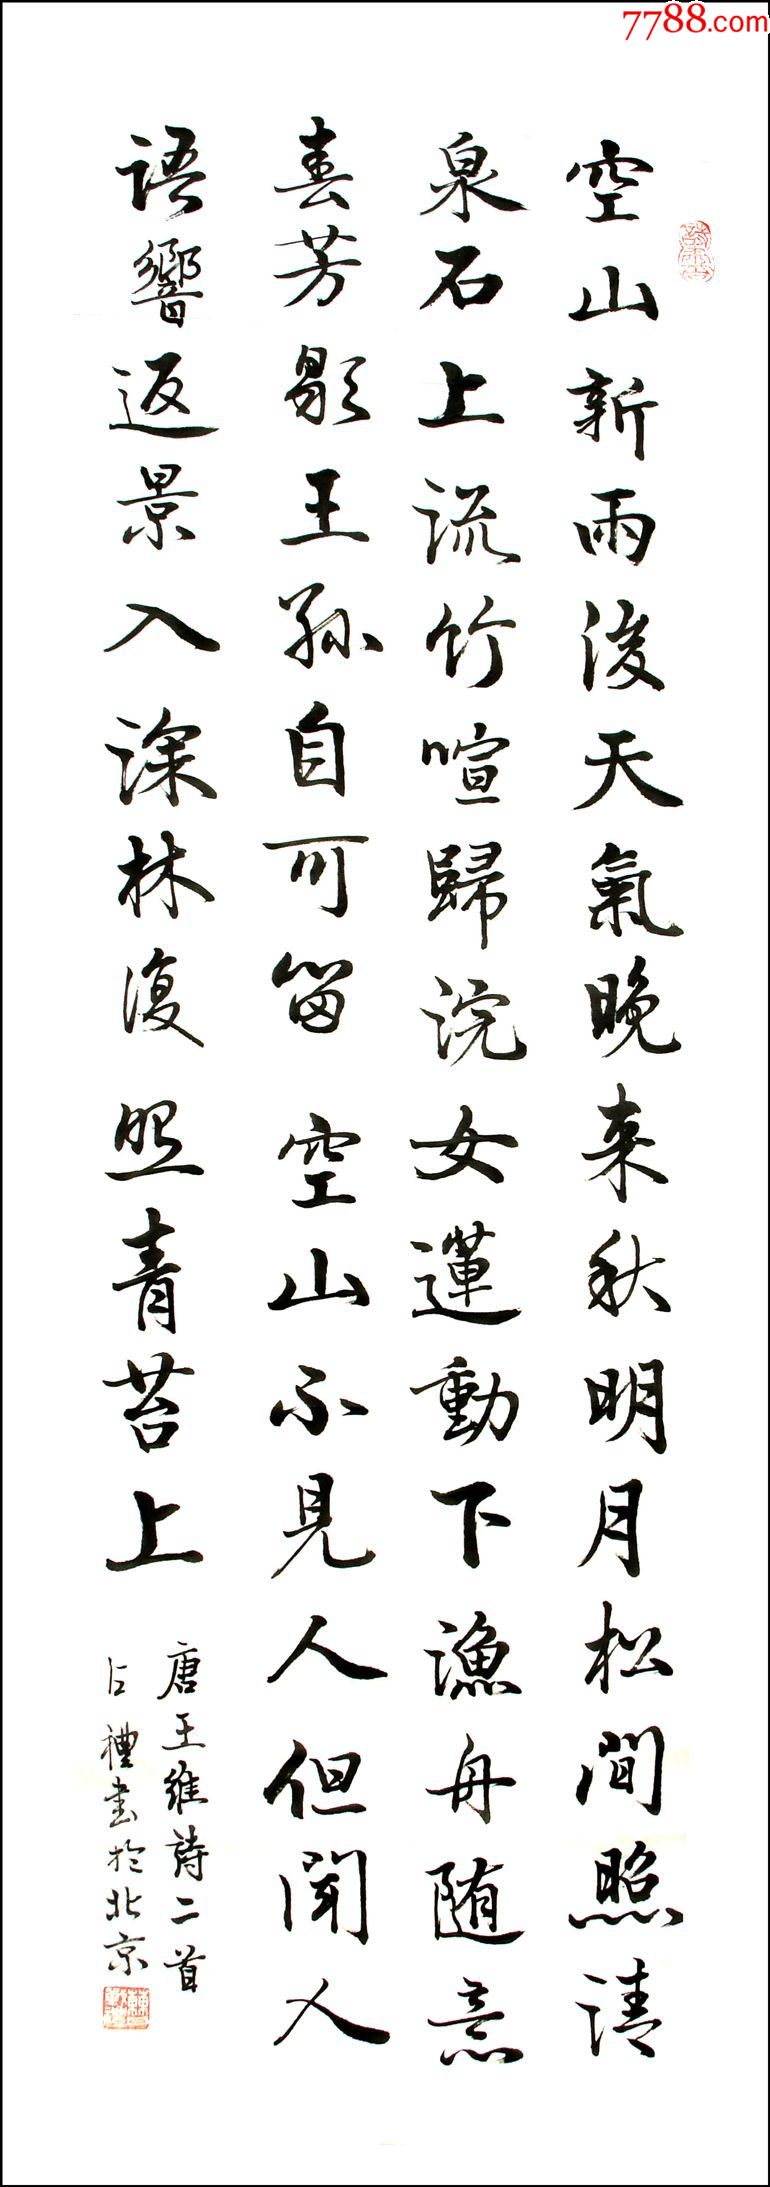 7788.com
空山新雨後天氣晚來秋明月松間照清
泉石上流竹喧歸浣女蓮動下漁舟随意
春芳歇王孫自可留空山不見人但聞人
語響返景入深林復照青苔上
唐王維詩二首
占禮書於北京